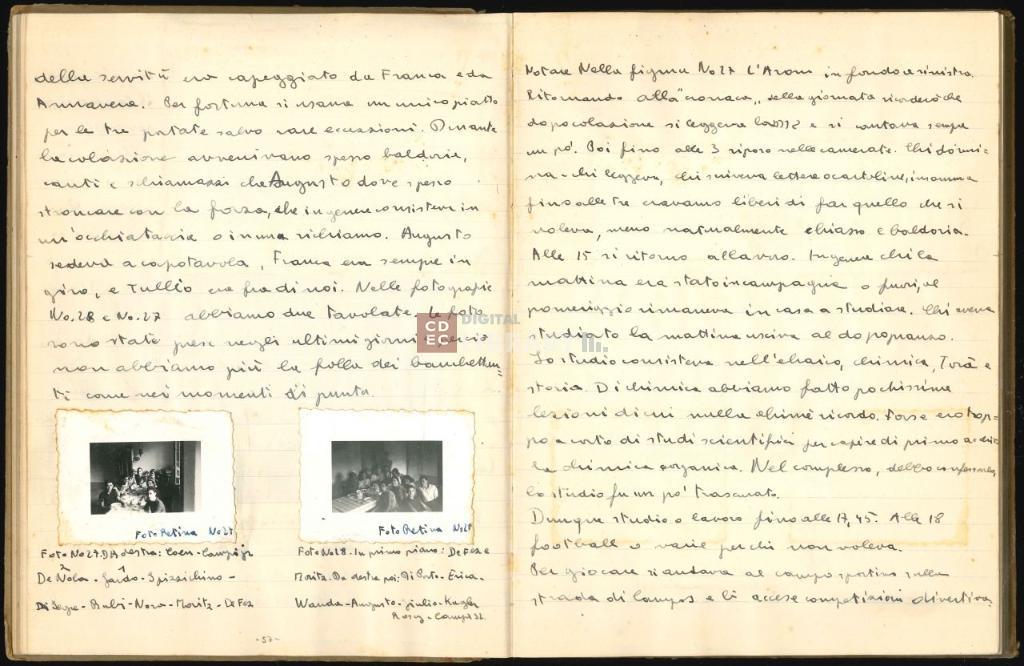 della servitù era capeggiato da Franca e da
Annavera. Per fortuna si usava un unico piatto
per le tre portate salvo rare eccezioni. Durante
la colazione avvenivano spesso baldorie,
canti e schiamazzi che Augusto dové spesso
stroncare con la forza, che in genere consisteva in
un'occhiataccia o in un richiamo. Augusto
sedeva a capotavola, Franca era sempre in
giro, e Tullio era fra di noi. Nelle fotografie
No. 28 e No. 27 abbiamo due tavolate. Le foto
sono state prese negli ultimi giorni e perciò
non abbiamo più la folla dei banchettan-
ti come nei momenti di punta.
Foto Retina No 27
Foto Retina No 28
Foto No 27. Da destra: Coen - Campi jr
De Nola - Guido - Spizzichino -
Di Segni - Rubi - Nora - Moritz - De Paz
Foto No 28. In primo piano: De Paz e
Moritz. Da destra poi: Di Porto - Erica -
Wanda - Augusto - Giulio - Kugler
Rosy - Campi
- 57 -
CD
EC
DIGITAL
Notare nella figura No 27 l'Aron in fondo a sinistra.
Ritornando alla "cronaca" della giornata ricorderò che
dopo colazione si leggeva la e si cantava sempre
un pò. Poi fino alle 3 riposo nelle camerate. Chi dormi-
va - chi leggeva, chi scriveva lettere o cartoline, insomma
fino alle tre eravamo liberi di far quello che si
voleva, meno naturalmente chiasso e baldoria.
Alle 15 si ritorno al lavoro. In genere chi la
mattina era stato in campagna o fuori, al
pomeriggio rimaneva in casa a studiare. Chi aveva
studiato la mattina usciva al dopopranzo.
Lo studio consisteva nell'ebraico, chimica, Torà e
storia. Di chimica abbiamo fatto pochissime
lezioni di cui nulla ahimè ricordo. Forse ero trop-
po a corto di studi scientifici per capire di primo acchito
la chimica organica. Nel complesso, debbo confessare,
lo studio fu un po' trascurato.
Dunque studio o lavoro fino alle 17,45. Alle 18
football o varie per chi non voleva.
Per giocare si andava al campo sportivo sulla
strada di Campos e lì accese competizioni divertiva-